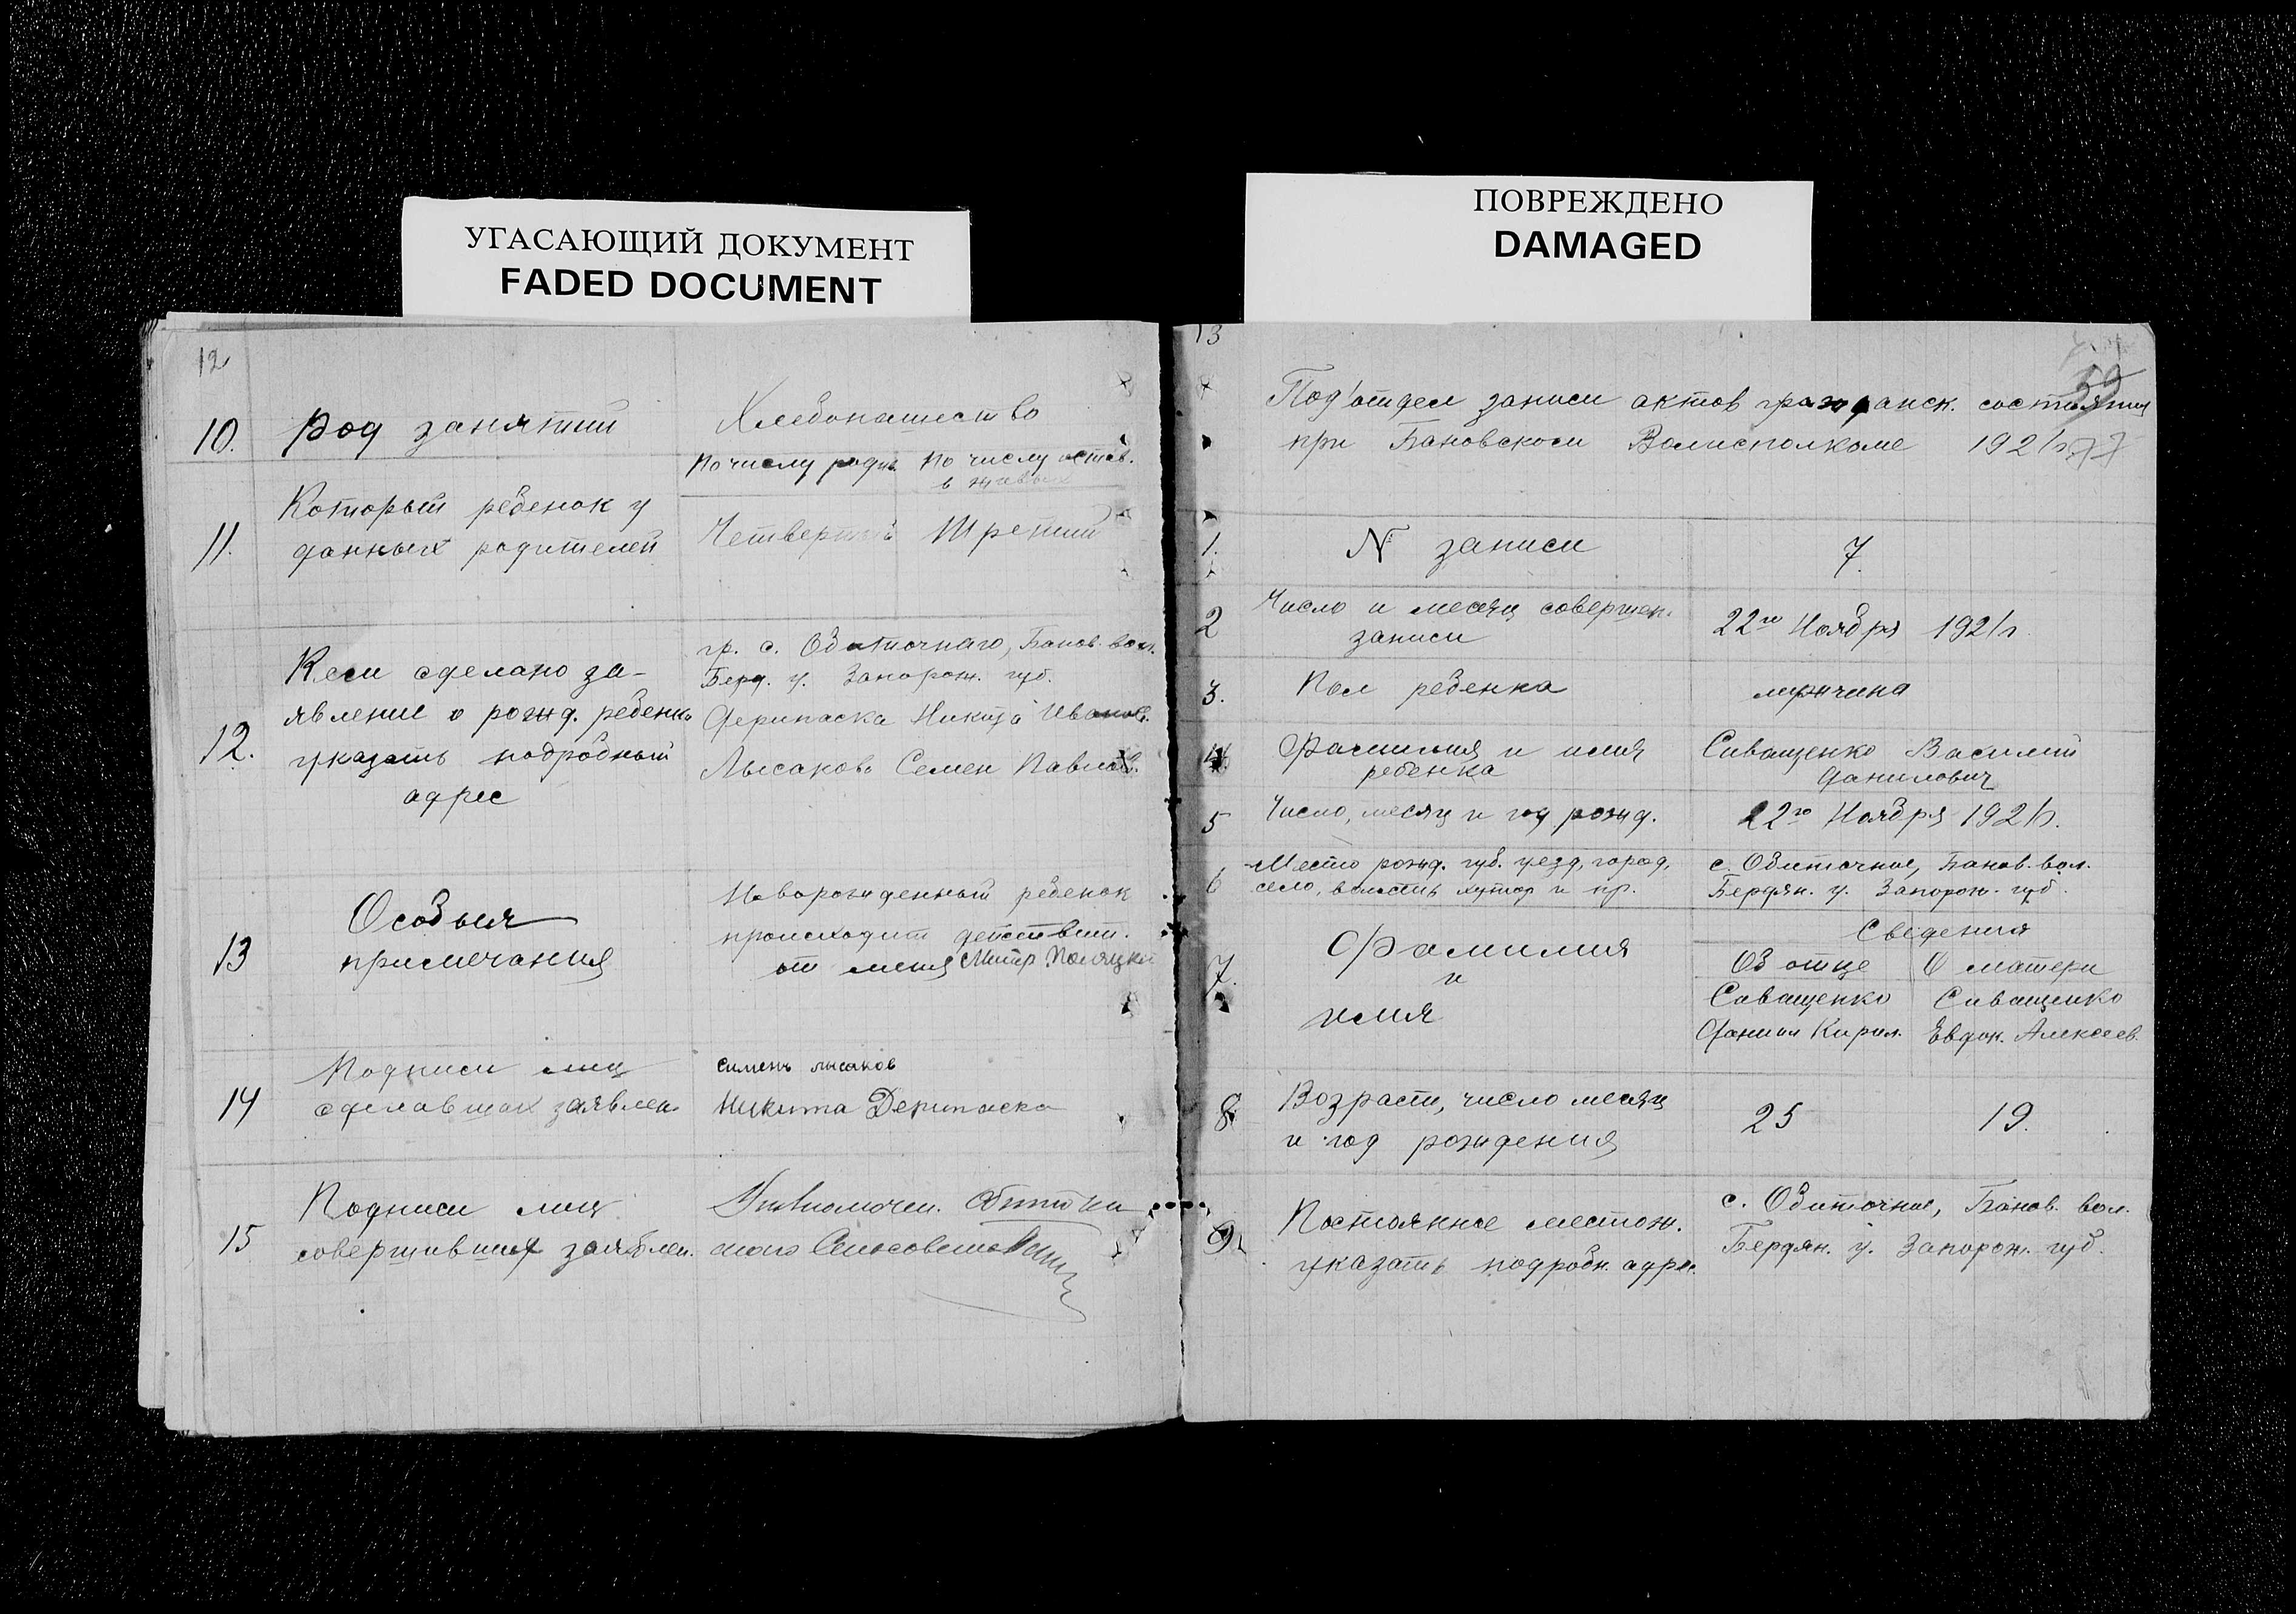 УГАСАЮЩИЙ ДОКУМЕНТ
FADED DOCUMENT
12
10. Род занятий Хлебопашество
По числу родив. По числу остав.
в живых
11. Который ребенок у
данных родителей Четвертый Третий
12. Кем сделано за-
явление о рожд. ребенка
указать подробный
адрес
гр. с. Обиточнаго, Банов. вол.
Берд. у. Запорож. губ.
Дерипаска Никита Иванов.
Лысаков Семен Павлов.
13 Особыя
примечания
Новорожденный ребенок
происходит действит.
от меня Митр
14 Подписи лиц
сделавших заявлен.
Сименъ лысаков
Никита Дерипаска
15 Подписи лиц
совершивших заявлен.
Уполномочен. Обиточн
Сельсовета
ПОВРЕЖДЕНО
DAMAGED
13
59
77
Под'отдел записи актов гражданск. состояния
при Бановском Волисполкоме 1921 г.
1. N записи 7.
2 Число и месяц совершен.
записи 22го Ноября 1921 г.
3. Пол ребенка мужчина
4. Фамилия и имя
ребенка
Сиващенко Василий
Данилович
5 Число, месяц и год рожд. 22го Ноября 1921 г.
6 Место рожд. губ. уезд, город,
село, волость хутор и пр.
с. Обиточное, Банов. вол.
Бердян. у. Запорож. губ.
7. Фамилия
и
имя
Сведения
Об отце О матери
Сиващенко Сиващенко
Данил Кирил. Евдок. Алексеев.
8. Возраст, число месяц
и год рождения 25 19.
9. Постоянное местож.
указать подробн. адрес.
с. Обиточное, Банов. вол.
Бердян. у. Запорож. губ.